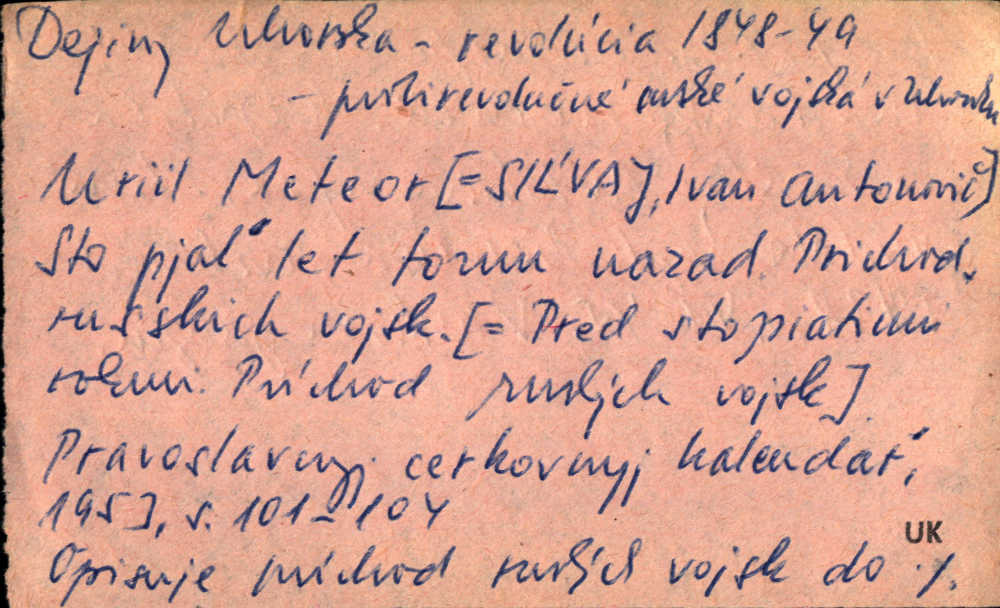 Dejiny Uhorska - revolúcia 1848-49
- protirevolučné ruské vojská v Uhorsku
Uriil Meteor [=SIĽVAJ, Ivan Antonovič]
Sto pjať let tomu nazad. Prichod.
russkich vojsk. [= Pred stopiatimi
rokmi. Príchod ruských vojsk]
Pravoslavnyj cerkovnyj kalendař,
1953, s. 101-104
UK
Opisuje príchod ruských vojsk do ./.